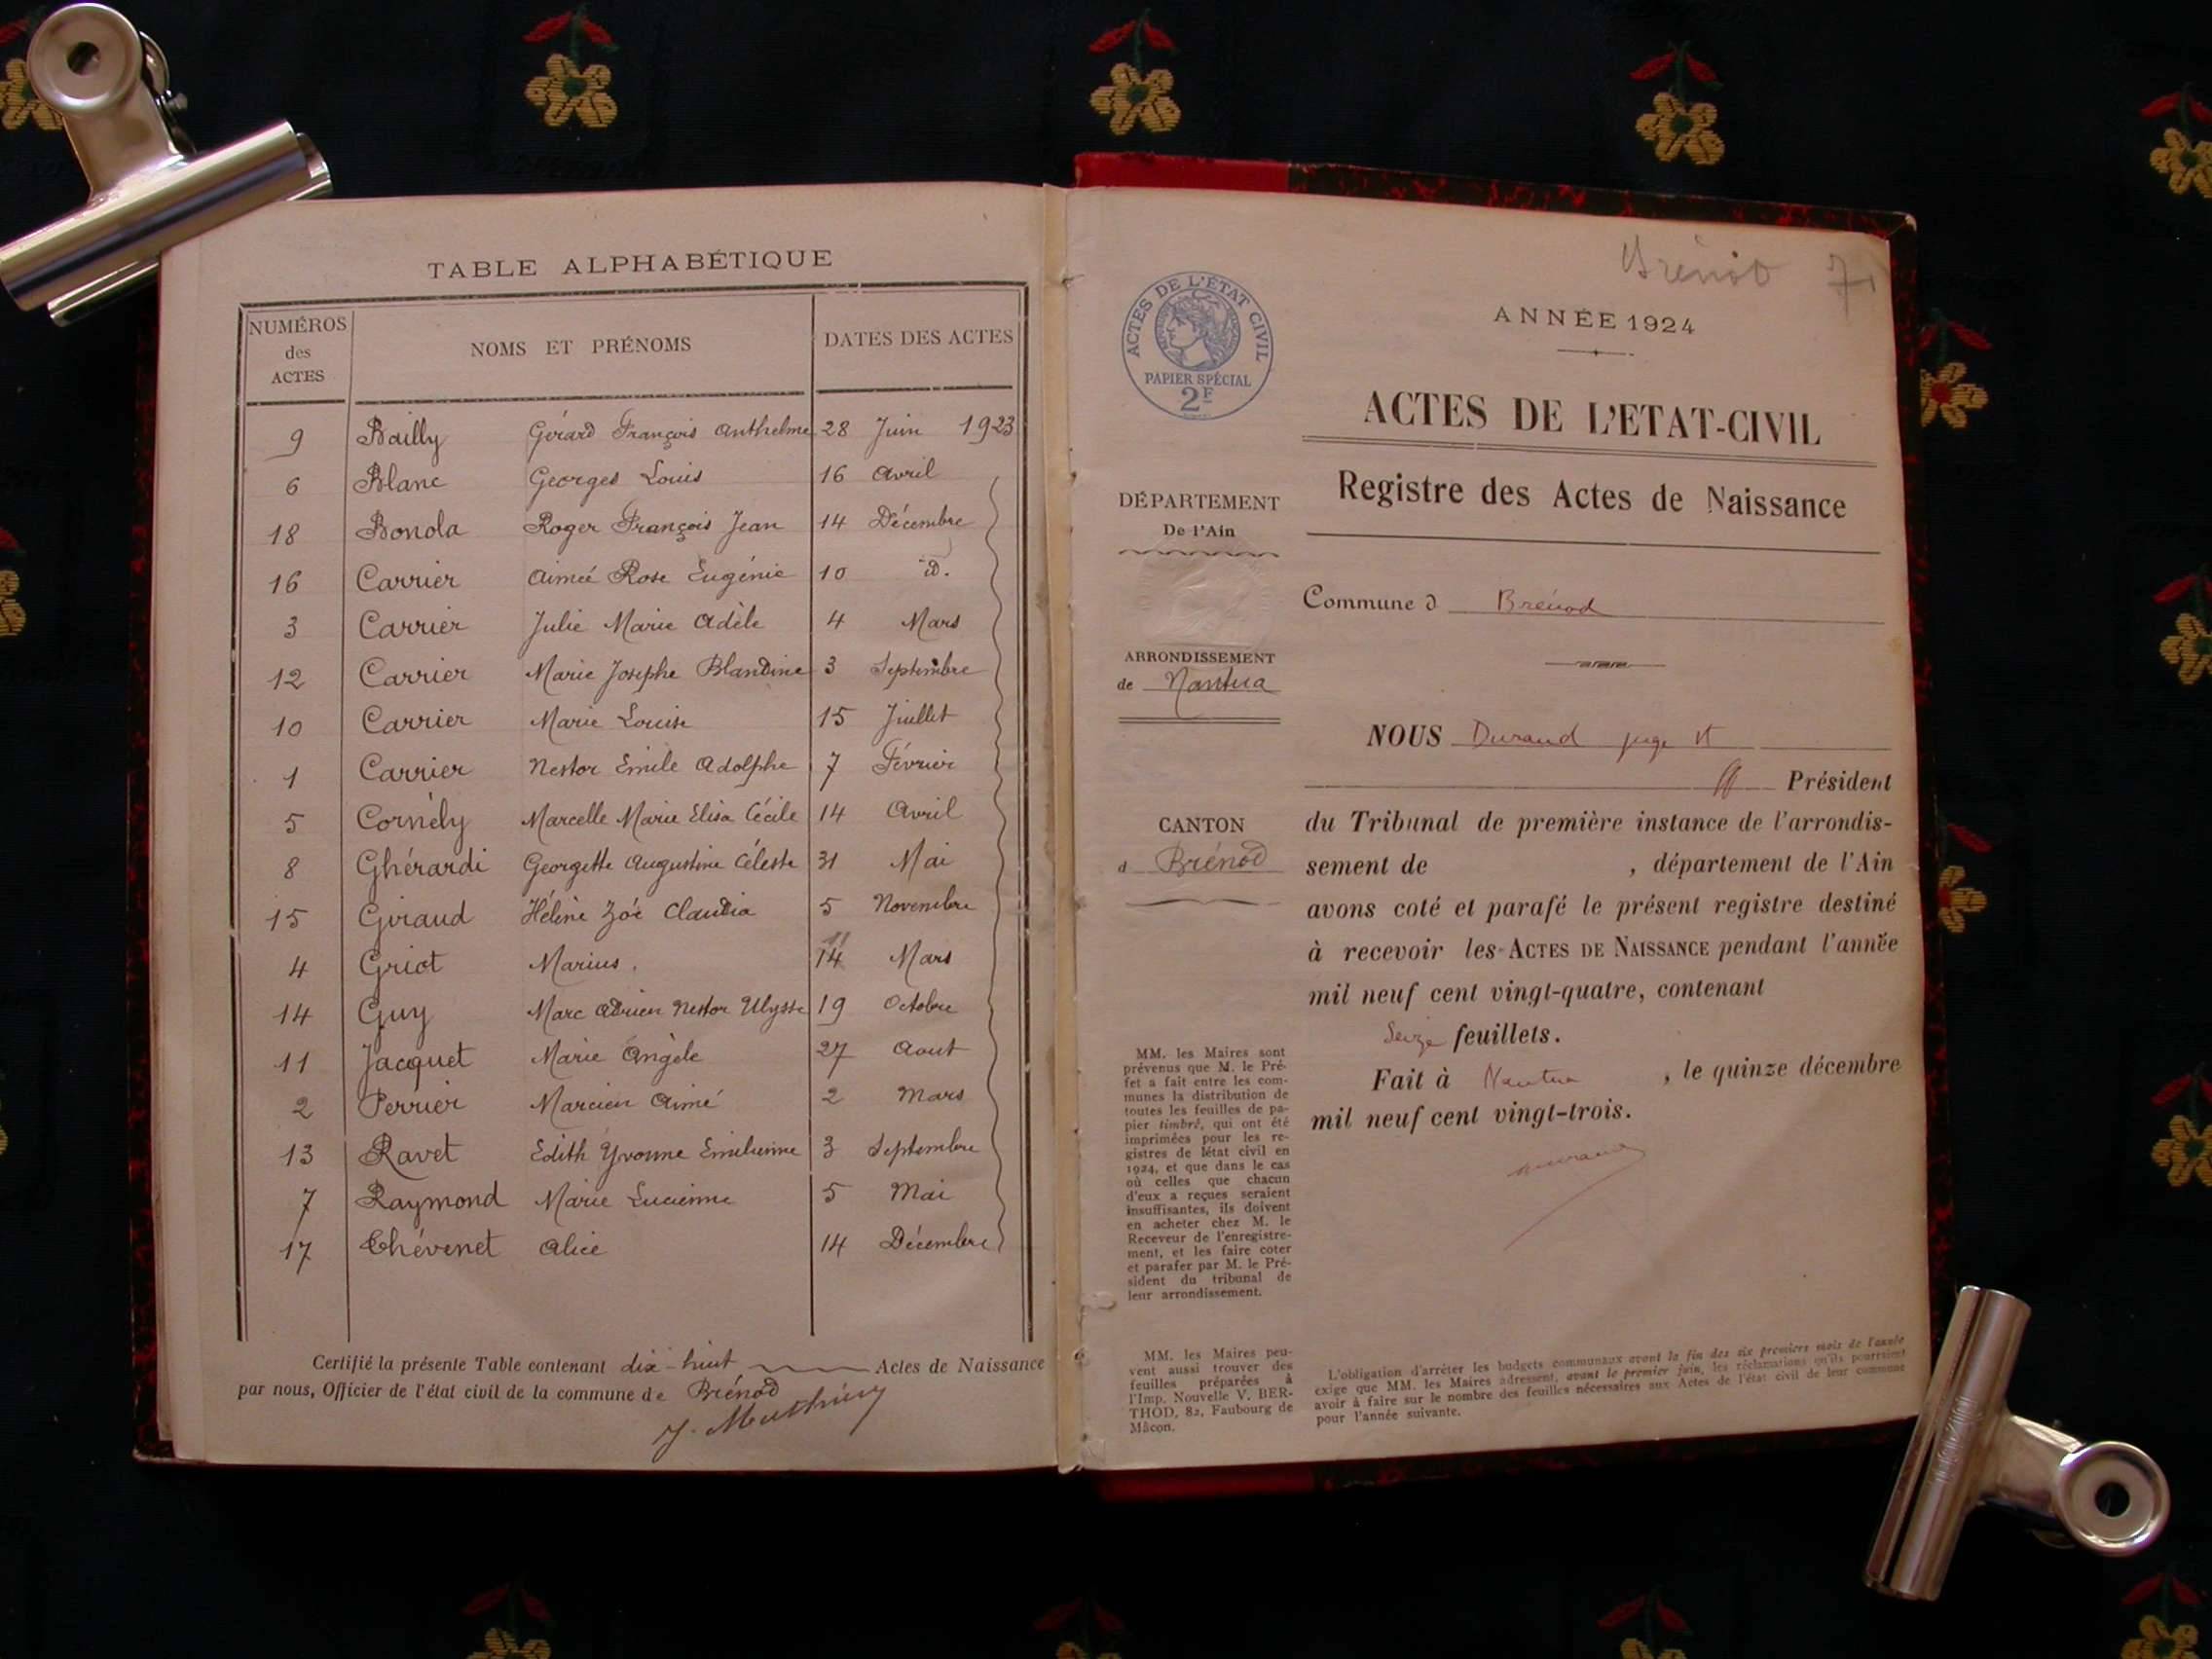 TABLE ALPHABÉTIQUE
NUMÉROS des ACTES NOMS ET PRÉNOMS DATES DES ACTES
9 Bailly Gérard François Anthelme 28 Juin 1923
6 Blanc Georges Louis 16 Avril
18 Bonola Roger François Jean 14 Décembre
16 Carrier Aimée Rose Eugénie 10 id.
3 Carrier Julie Marie Adèle 4 Mars
12 Carrier Marie Josephe Blandine 3 Septembre
10 Carrier Marie Louise 15 Juillet
1 Carrier Nestor Emile Adolphe 7 Février
5 Cornély Marcelle Marie Elisa Cécile 14 Avril
8 Ghérardi Georgette Augustine Céleste 31 Mai
15 Giraud Hélène Zóé Claudia 5 Novembre
11
4 Griot Marius. 14 Mars
14 Guy Marc Adrien Nestor Ulysse 19 Octobre
11 Jacquet Marie Angèle 27 Aout
2 Perrier Marcien Aimé 2 Mars
13 Ravet Edith Yvonne Emilienne 3 Septembre
7 Raymond Marie Lucienne 5 Mai
17 Thévenet Alice 14 Décembre
Certifié la présente Table contenant dix-huit Actes de Naissance
par nous, Officier de l'état civil de la commune de Brénod
Brénod 71
ACTES DE L'ÉTAT CIVIL
PAPIER SPÉCIAL
2F
ANNÉE 1924
ACTES DE L'ETAT-CIVIL
Registre des Actes de Naissance
DÉPARTEMENT
De l'Ain
Commune d Brénod
ARRONDISSEMENT
de Nantua
CANTON
d Brénod
NOUS Durand juge
Président
du Tribunal de première instance de l'arrondis-
sement de , département de l'Ain
avons coté et parafé le présent registre destiné
à recevoir les ACTES DE NAISSANCE pendant l'année
mil neuf cent vingt-quatre, contenant
Seize feuillets.
Fait à Nantua , le quinze décembre
mil neuf cent vingt-trois.
MM. les Maires sont
prévenus que M. le Pré-
fet a fait entre les com-
munes la distribution de
toutes les feuilles de pa-
pier timbré, qui ont été
imprimées pour les re-
gistres de létat civil en
1924, et que dans le cas
où celles que chacun
d'eux a reçues seraient
insuffisantes, ils doivent
en acheter chez M. le
Receveur de l'enregistre-
ment, et les faire coter
et parafer par M. le Pré-
sident du tribunal de
leur arrondissement.
MM. les Maires peu-
vent aussi trouver des
feuilles préparées à
l'Imp. Nouvelle V. BER-
THOD, 82, Faubourg de
Mâcon.
L'obligation d'arrêter les budgets communaux avant la fin des six premiers mois de l'année
exige que MM. les Maires adressent, avant le premier juin, les réclamations qu'ils pourraient
avoir à faire sur le nombre des feuilles nécessaires aux Actes de l'état civil de leur commune
pour l'année suivante.